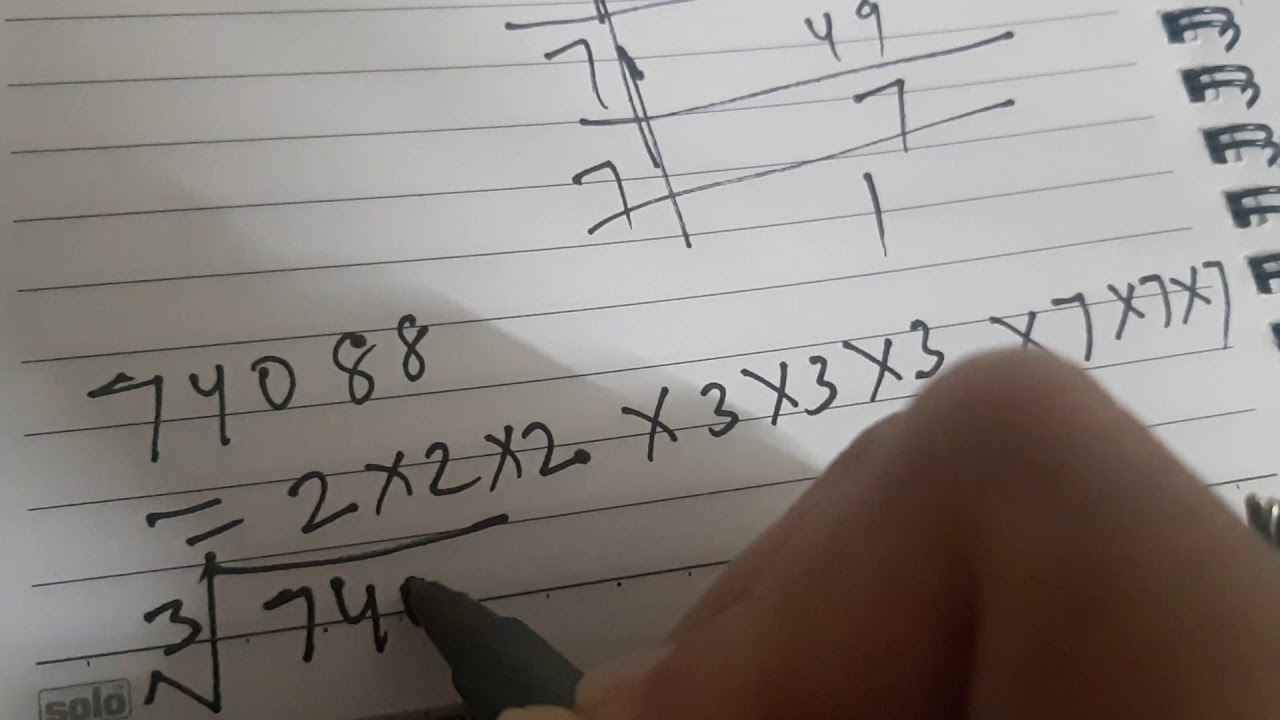 7 49
7 7
1
74088
= 2×2×2 ×3×3×3 ×7×7×7
∛740
solo